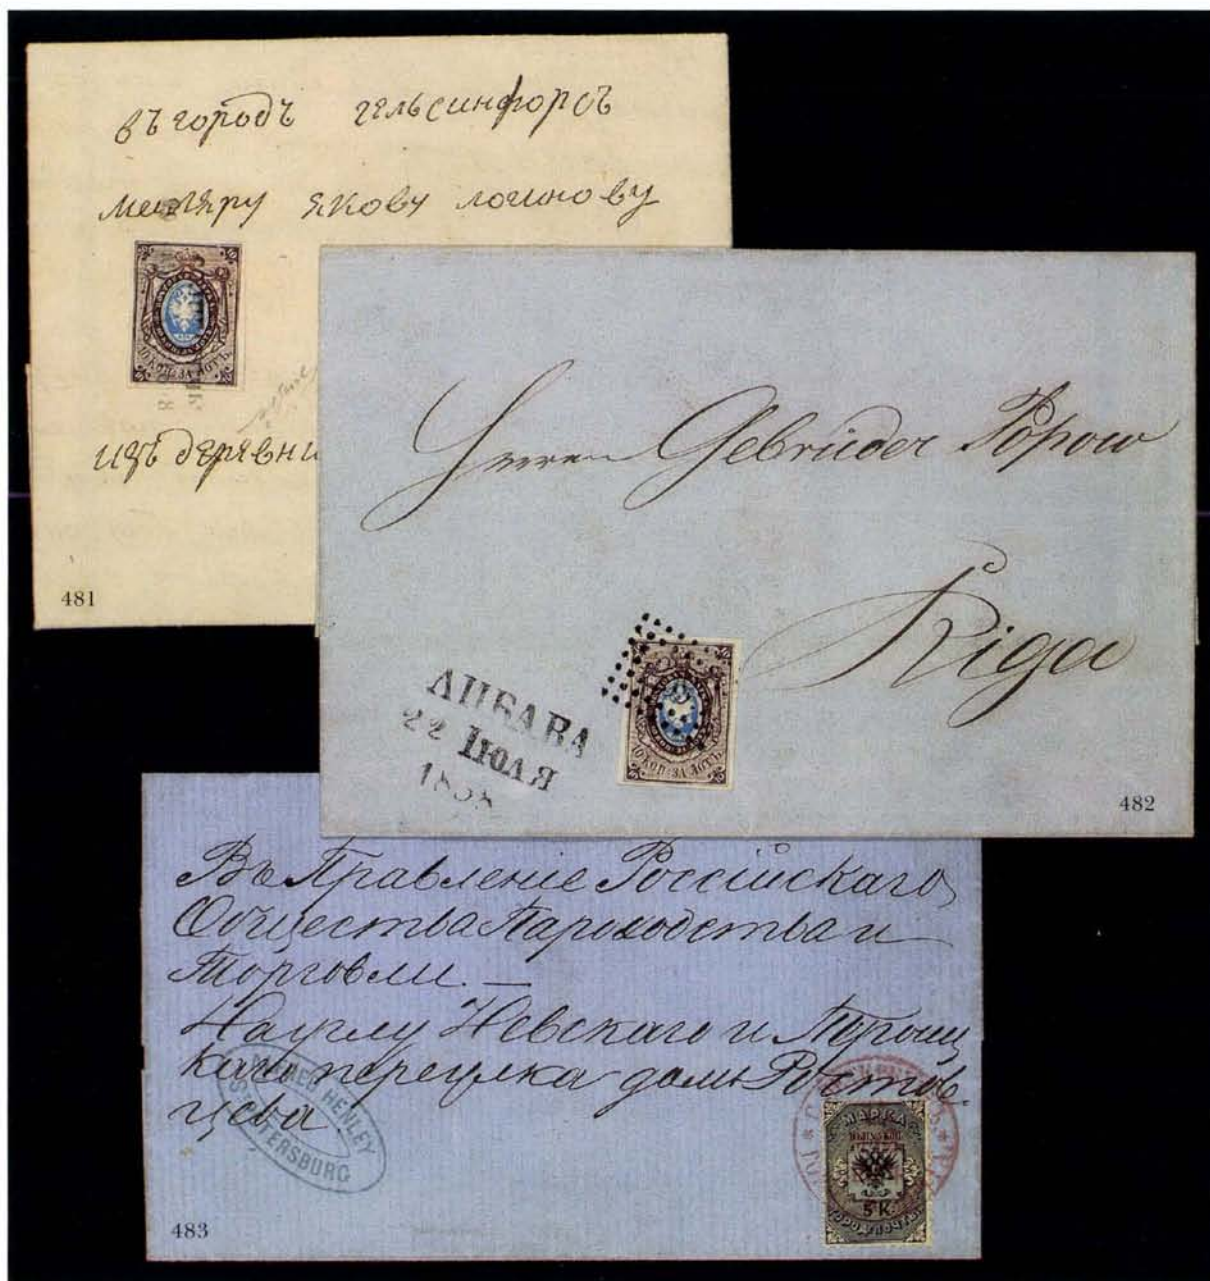 въ городъ гельсинфорсъ
меляру якову логинову
10 КОП: ЗА ЛОТЪ.
изъ деревни
481
Herren Gebrüder Popow
Riga
ЛИБАВА
22 ІЮЛЯ
1858
10 КОП: ЗА ЛОТЪ.
482
Въ Правленіе Россійскаго
Общества Пароходства и
Торговли. —
На углу Невскаго и Троиц
каго переулка домъ Ростов
цева.
HENLEY
ST PETERSBURG
МАРКА
5 К.
ГОРОД. ПОЧТЫ
483